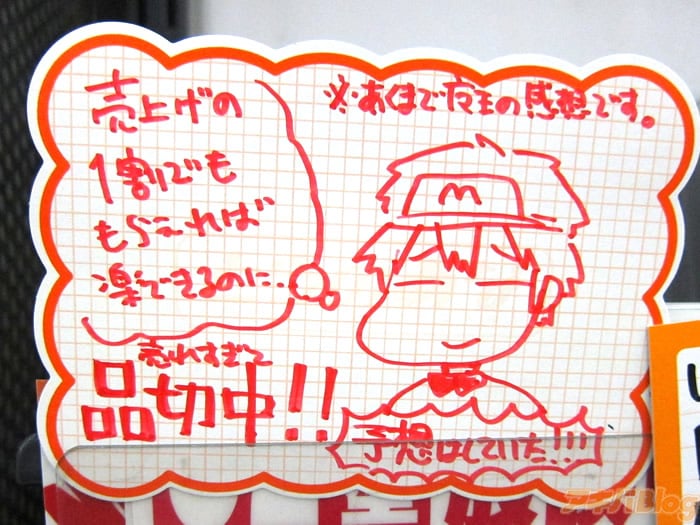 ※あくまで店主の感想です。
売上げの
1割でも
もらえれば
楽できるのに..
M
売れすぎて
品切中!!
予想はしていた!!!
アキバBlog